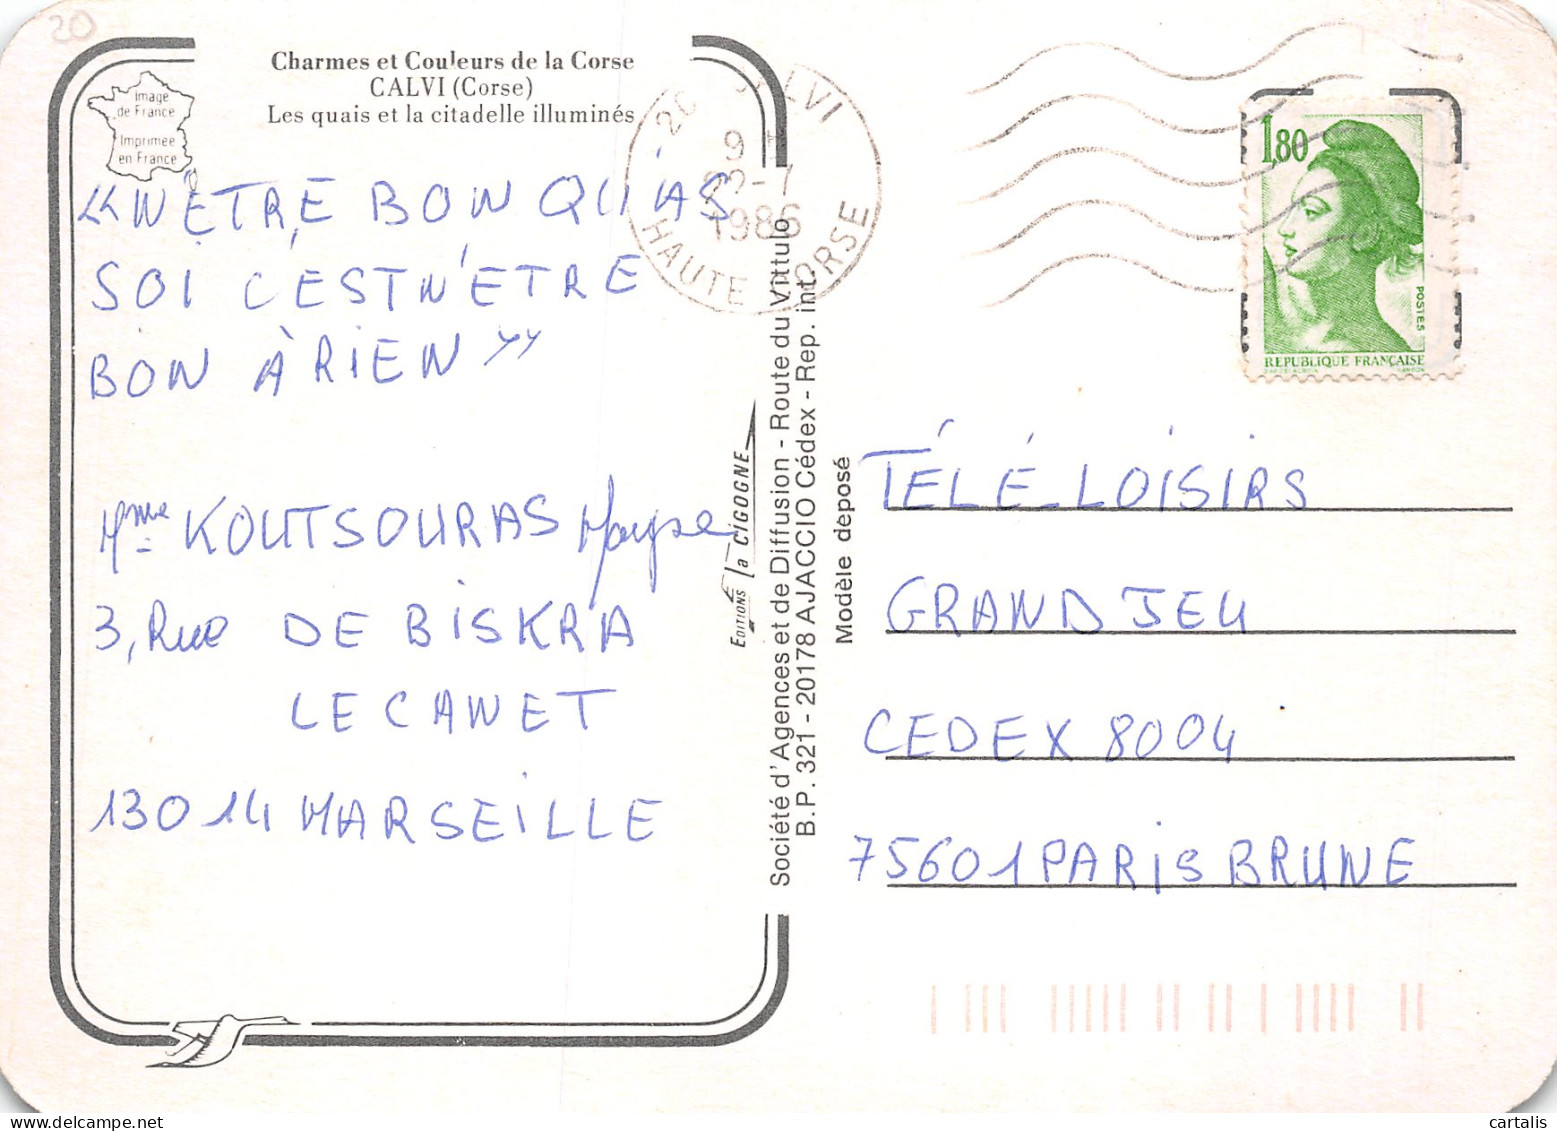 20
Charmes et Couleurs de la Corse
CALVI (Corse)
Les quais et la citadelle illuminés
Image
de France
Imprimée
en France
« N'ÊTRE BON QU'À
SOI C'EST N'ÊTRE
BON À RIEN »
Mme KOUTSOURAS Maryse
3, Rue DE BISKRA
LE CANET
13014 MARSEILLE
20 CALVI
9 H
1986
HAUTE CORSE
EDITIONS la CIGOGNE
Société d'Agences et de Diffusion - Route du Vittulo
B.P. 321 - 20178 AJACCIO Cédex - Rep. int.
Modèle déposé
1,80
POSTES
REPUBLIQUE FRANÇAISE
TÉLÉ-LOISIRS
GRAND JEU
CEDEX 8004
75601 PARIS BRUNE
cartalis